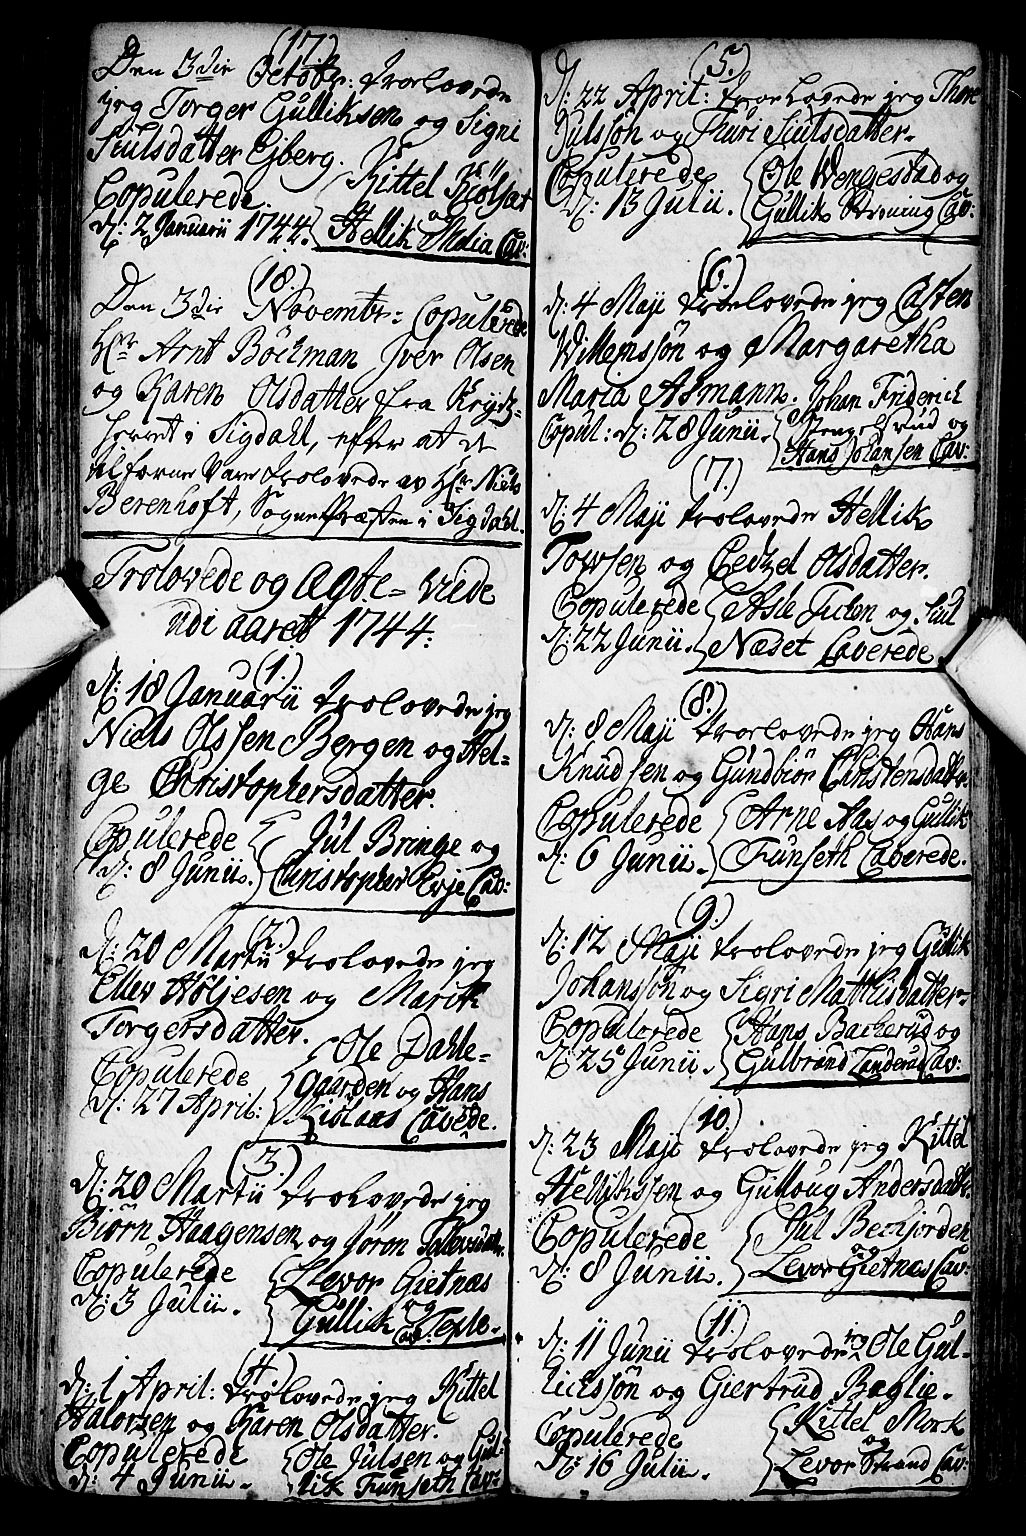 (17)
Den 3die Octobr: trolovede
jeg Torger Gulliksen og Signi
Skulsdatter Ejberg.
Copulerede
d: 2 Januarii 1744.
Kittel Kiölset
Hellik Mælia Cav:
(18.)
Den 3die Novembr: Copulerede
Hr Arnt Böckman Iver Olsen
og Karen Olsdatter fra Krydz-
herret i Sigdahl, efter at de
tilforne vare trolovede av Hr Niels
Berenhoft, Sognepræsten i Sigdahl.
Trolovede og Ægte-viede
udi aaret 1744.
(1.)
d: 18 Januarii trolovede jeg
Niels Olssen Bergen og Hel-
ge Christophersdatter.
Copulerede
d: 8 Junii.
Jul Bringe og
Christopher Ryje Cav:
(2.)
d: 20 Martii trolovede jeg
Ellev Höljesen og Marith
Torgersdatter.
Copulerede
d: 27 April:
Ole Dahle-
gaarden og Hans
Kislaas Cavede.
(3.)
d: 20 Martii trolovede jeg
Biörn Haagensen og Jöron
Copulerede
d: 3 Julii.
Levor Gietnæs
og
Gullik Teple. Cav:
(4.)
d: 1 April: trolovede jeg Kittel
Halorsen og Karen Olsdatter.
Copulerede
d: 4 Junii.
Ole Julsen og Gul-
lik Funseth Cav:
(5.)
d: 22 April: trolovede jeg Thore
Julssön og Turi Siulsdatter.
Copulerede
d: 13 Julii.
Ole Wengestad og
Gullik Strøning Cav:
(6.)
d: 4 Maji trolovede jeg Casten
Willemssön og Margaretha
Maria Asmann.
Copul: d: 28 Junii.
Johan Friderich
Stengelsrud og
Hans Johansen Cav:
(7.)
d: 4 Maji trolovede Hellik
Towsen og Cedzel Olsdatter.
Copulerede
d: 22 Junii.
Asle Tufen og Siul
Næset Caverede.
(8.)
d: 8 Maji trolovede jeg Hans
Knudsen og Gundbiör Christensdatter.
Copulerede
d: 6 Junii.
Arne Aas og Gullik
Funseth Caverede.
(9.)
d: 12 Maji trolovede jeg Gullik
Johanssön og Sigri Mathisdatter.
Copulerede
d: 25 Junii.
Hans Backerus og
Gulbrand Landerud Cav:
(10.)
d: 23 Maji trolovede jeg Kittel
Hellikssen og Gulloug Andersdatter.
Copulerede
d: 8 Junii.
Jul Beckjorden
og
Levor Gietnæs Cav:
(11.)
d: 11 Junii trolovede jeg Ole Gul-
lickssön og Giertrud Baglie.
Copulerede
d: 16 Julii.
Kittel Mork
og
Levor Strand Cav: